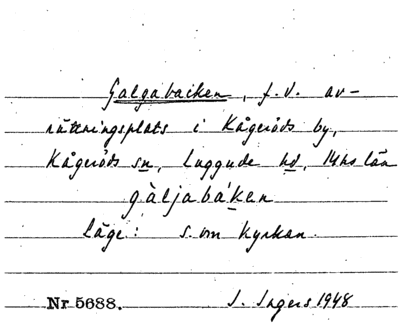 Galgabacken, f.d. av-
rättningsplats i Kågeröds by,
Kågeröds sn, Luggude hd, Mhs län
gàljabáken
Läge: s. om kyrkan.
Nr 5688. I. Ingers 1948